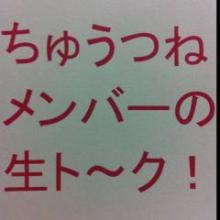 ちゅうつね
メンバーの
生ト～ク！